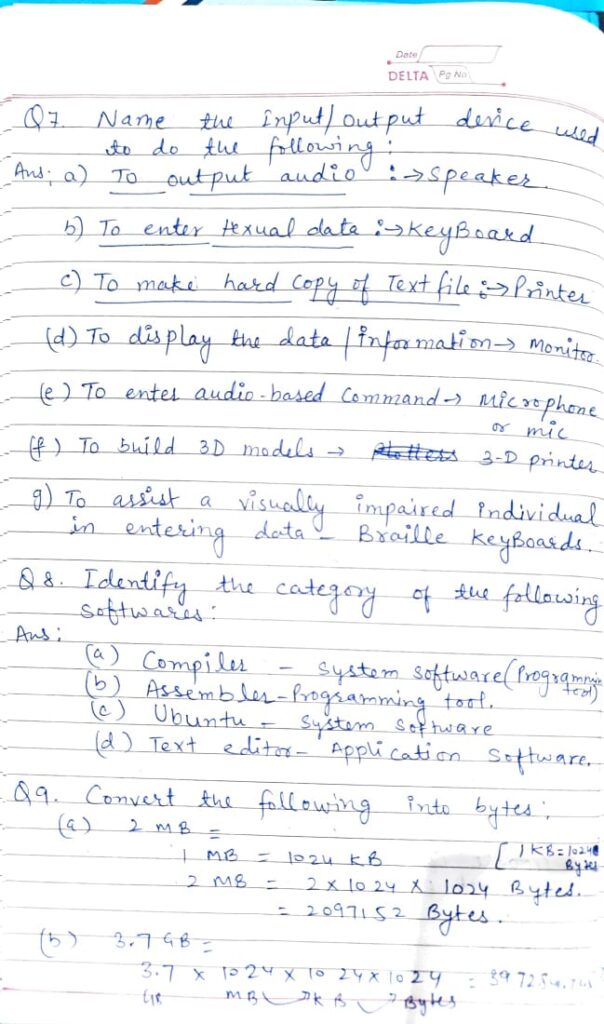 Date
DELTA Pg No.
Q7. Name the Input/output device used
to do the following:
Ans: a) To output audio :→ Speaker.
b) To enter texual data :→ KeyBoard
c) To make hard Copy of Text file :→ Printer
(d) To display the data / Information → Monitor.
(e) To enter audio-based Command → Microphone
or mic
(f) To build 3D models → 3-D printer
g) To assist a visually impaired Individual
in entering data - Braille KeyBoards.
Q8. Identify the category of the following
Softwares:
Ans:
(a) Compiler - System Software (Programmin
tool)
(b) Assembler - Programming tool.
(c) Ubuntu - System Software
(d) Text editor - Application Software.
Q9. Convert the following into bytes:
(a) 2 MB =
1 MB = 1024 KB [1 KB = 1024
Bytes
2 MB = 2 x 1024 x 1024 Bytes.
= 2097152 Bytes.
(b) 3.7 GB =
3.7 x 1024 x 1024 x 1024 =
GB MB KB Bytes